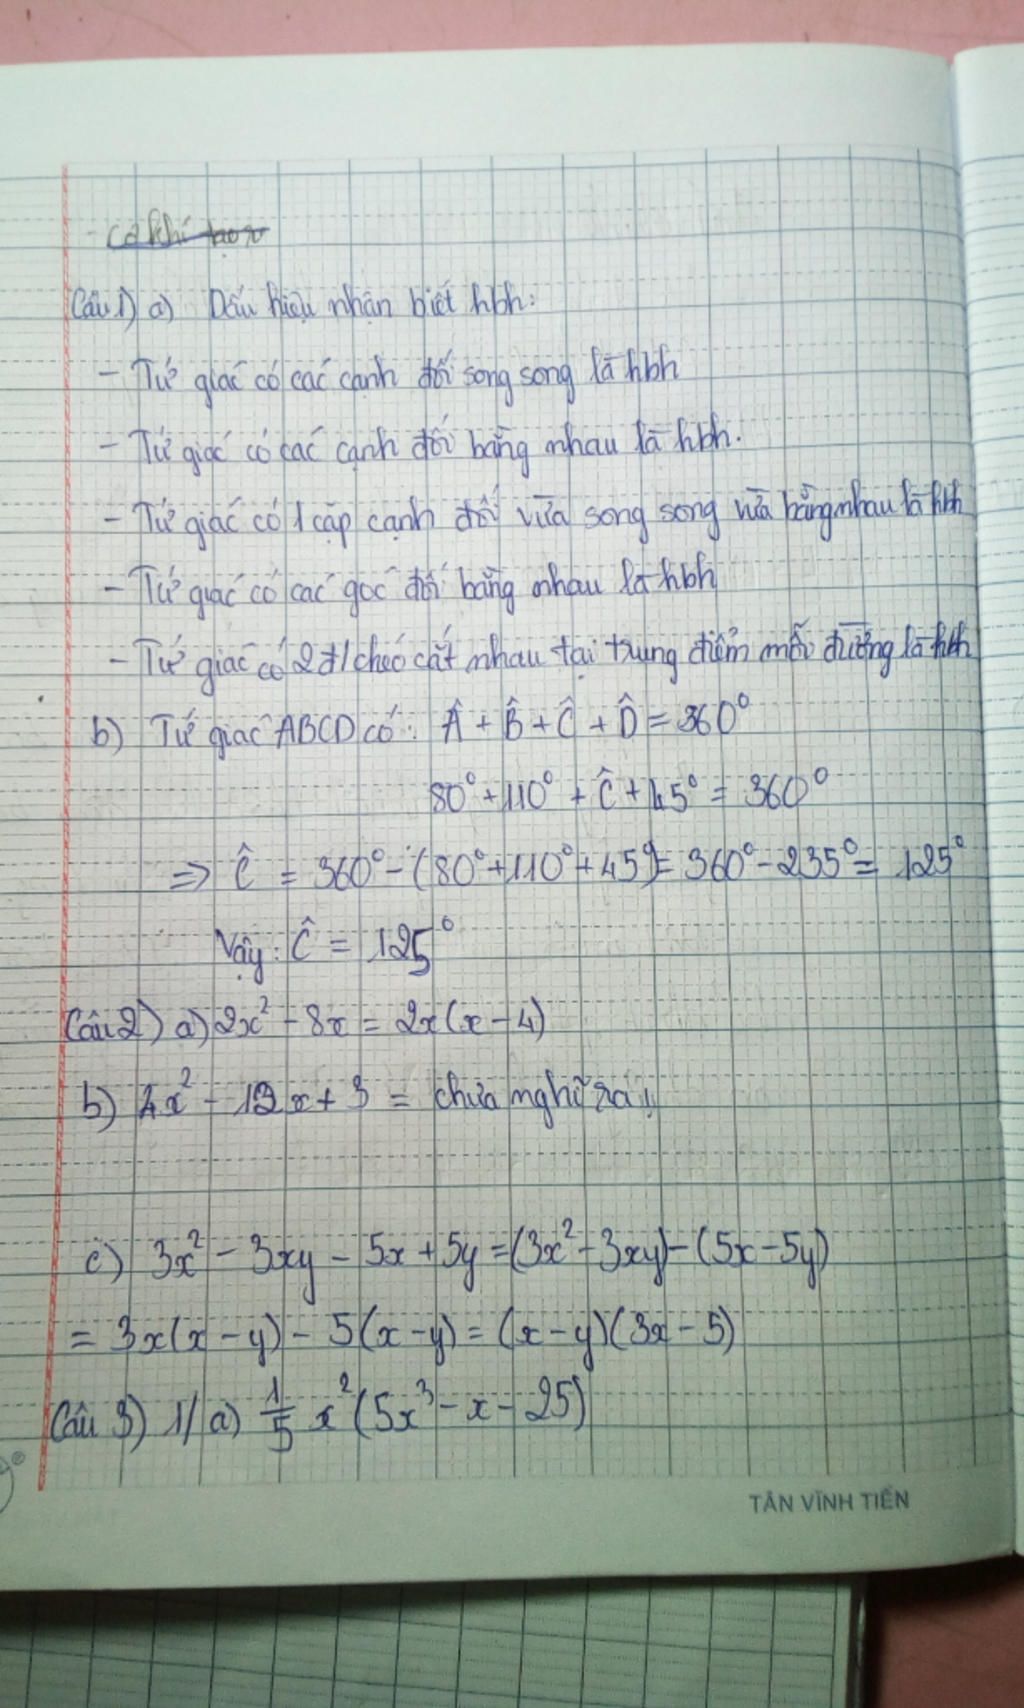 - Cơ khí tạo r
Câu 1) a) Dấu hiệu nhận biết hbh:
- Tứ giác có các cạnh đối song song là hbh
- Tứ giác có các cạnh đối bằng nhau là hbh.
- Tứ giác có 1 cặp cạnh đối vừa song song vừa bằng nhau là hbh
- Tứ giác có các góc đối bằng nhau là hbh
- Tứ giác có 2 đ/chéo cắt nhau tại trung điểm mỗi đường là hbh
b) Tứ giác ABCD có: Â + B̂ + Ĉ + D̂ = 360°
80° + 110° + Ĉ + 45° = 360°
=> Ĉ = 360° - (80° + 110° + 45°) = 360° - 235° = 125°
Vậy: Ĉ = 125°
Câu 2) a) 2x² - 8x = 2x(x - 4)
b) 4x² - 12x + 3 = chưa nghĩ ra
c) 3x² - 3xy - 5x + 5y = (3x² - 3xy) - (5x - 5y)
= 3x(x - y) - 5(x - y) = (x - y)(3x - 5)
Câu 3) 1/ a) 1/5 x² (5x³ - x - 25)
TÂN VĨNH TIẾN